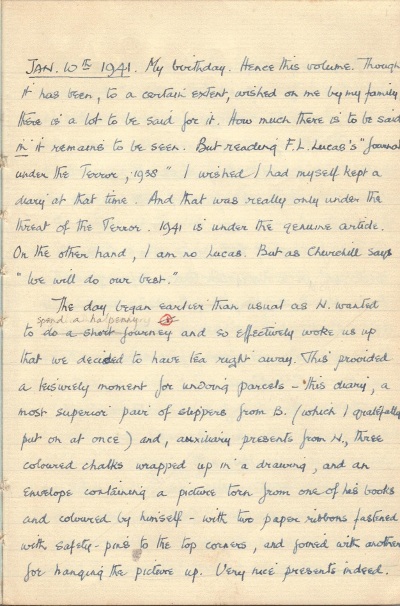 JAN. 10th 1941. My birthday. Hence this volume. Though
it has been, to a certain extent, wished on me by my family
there is a lot to be said for it. How much there is to be said
in it remains to be seen. But reading F.L. Lucas's "Journal
under the Terror, 1938" I wished I had myself kept a
diary at that time. And that was really only under the
threat of the Terror. 1941 is under the genuine article.
On the other hand, I am no Lucas. But as Churchill says
"We will do our best."
The day began earlier than usual as N. wanted
spend a ha'penny
to do a short journey and so effectively woke us up
that we decided to have tea right away. This provided
a leisurely moment for undoing parcels - this diary, a
most superior pair of slippers from B. (which I gratefully
put on at once) and, auxiliary presents from N., three
coloured chalks wrapped up in a drawing, and an
envelope containing a picture torn from one of his books
and coloured by himself - with two paper ribbons fastened
with safety-pins to the top corners, and joined with another
for hanging the picture up. Very nice presents indeed.